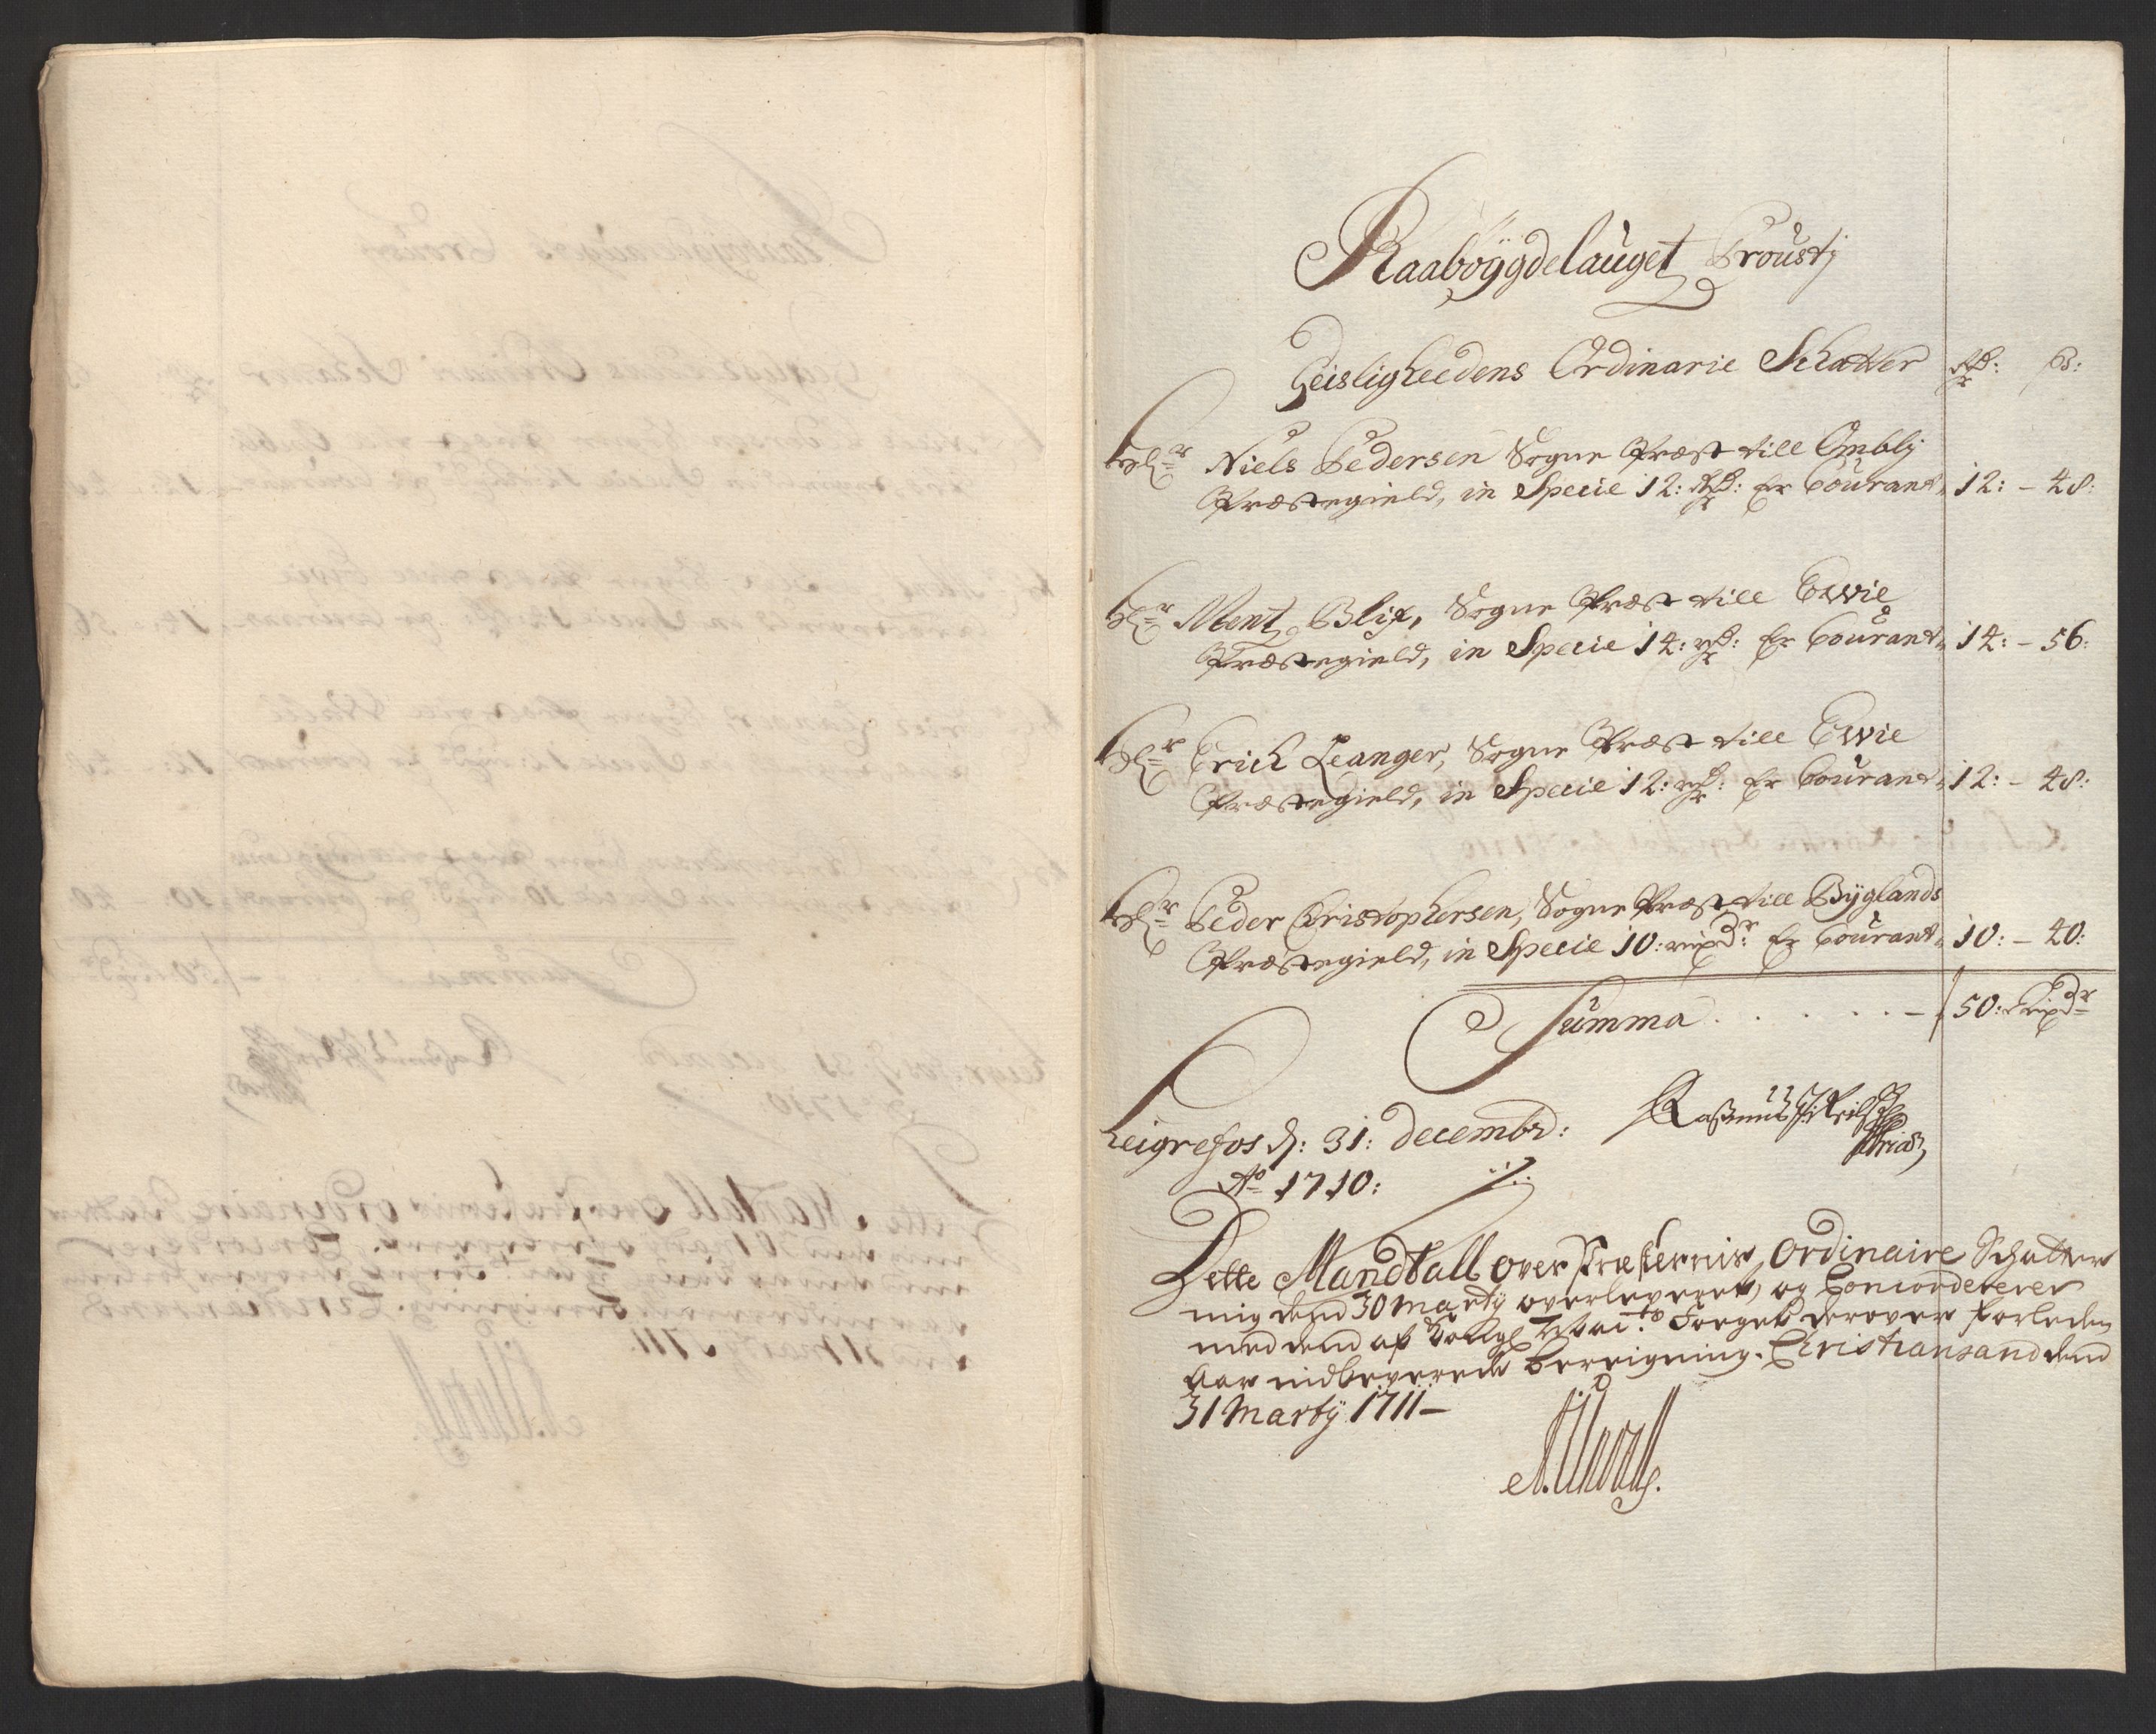 Raabøÿgdelauget Proustj
Geisligheedens Ordinarie Schatter Rdr: s:
Hr Niels Pedersen Sogne Præst till Omblj
Præstegield, in Specie 12: Rdr: Er Courant 12: - 48:
Hr Ment Blix, Sogne Præst till Ewie
Præstegield, in Specie 14: rdr: Er Courant 14: - 56:
Hr Erich Leanger, Sogne Præst till Ewie
Præstegield, in Specie 12: rdr: Er Courant 12: - 48:
Hr Peder Christophersen, Sogne Præst till Bÿglands
Præstegield, in Specie 10: rixdr: Er Courant 10: - 40:
Summa . . . . . - 50: Rixdr
Leigrefos d: 31: decembr:
Ao 1710:
Dette Mandtall over Præsternis Ordinaire Schatter
mig dend 30 Martÿ overleveret, og Concorderer
med dend af Kongl May:ts Foeget derover forleden
Aar indleverede bereigning. Christiansand dend
31 Martÿ 1711 -